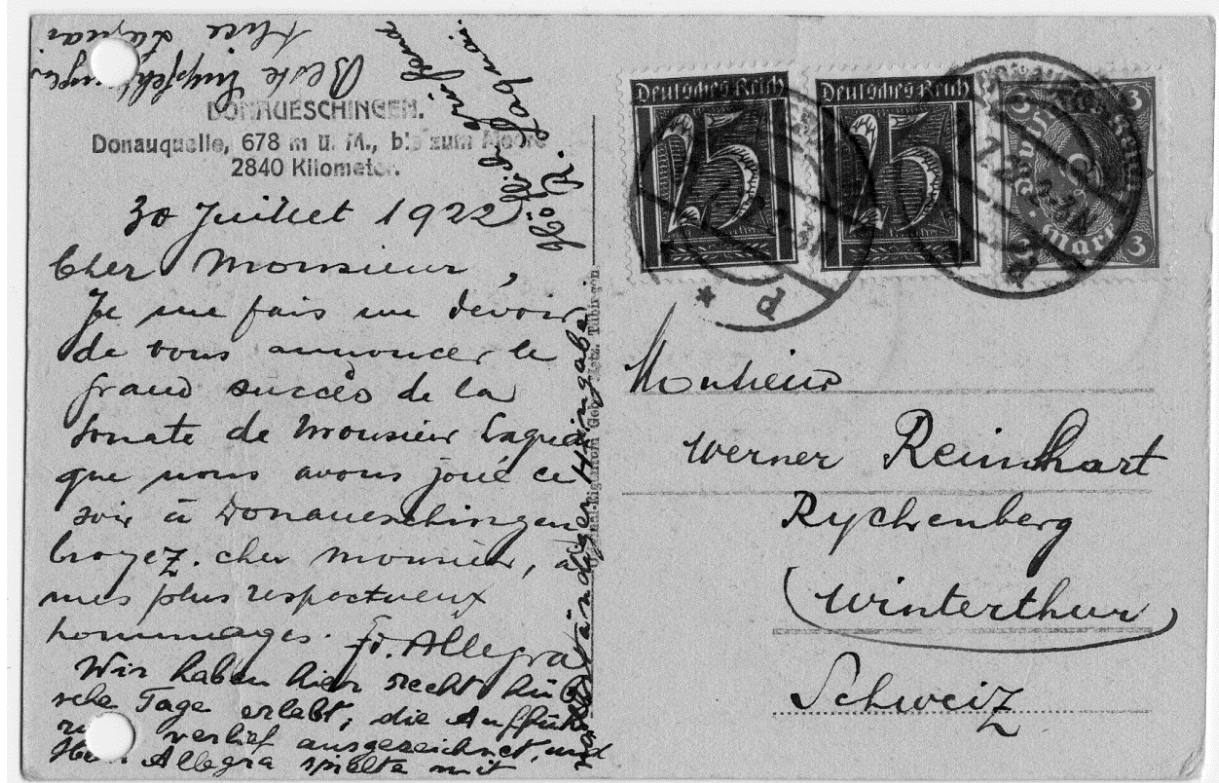 DONAUESCHINGEN.
Donauquelle, 678 m ü. M., bis zum Meere
2840 Kilometer.
30 Juillet 1922
Cher Monsieur,
Je me fais un devoir
de vous annoncer le
grand succès de la
Sonate de Monsieur Laquai
que nous avons joué ce
soir à Donaueschingen
Croyez, cher Monsieur, à
mes plus respectueux
hommages. Allegra
Wir haben hier recht hüb
sche Tage erlebt; die Auffüh
rung verlief ausgezeichnet, und
Herr Allegra spielte mit
verständiger Hingabe.
Höflich grüssend
R. Laquai.
Beste Empfehlungen
Alice Laquai
Deutsches Reich
25
Deutsches Reich
25
3
3
Mark
3
d
Monsieur
Werner Reinhart
Rychenberg
(Winterthur)
Schweiz